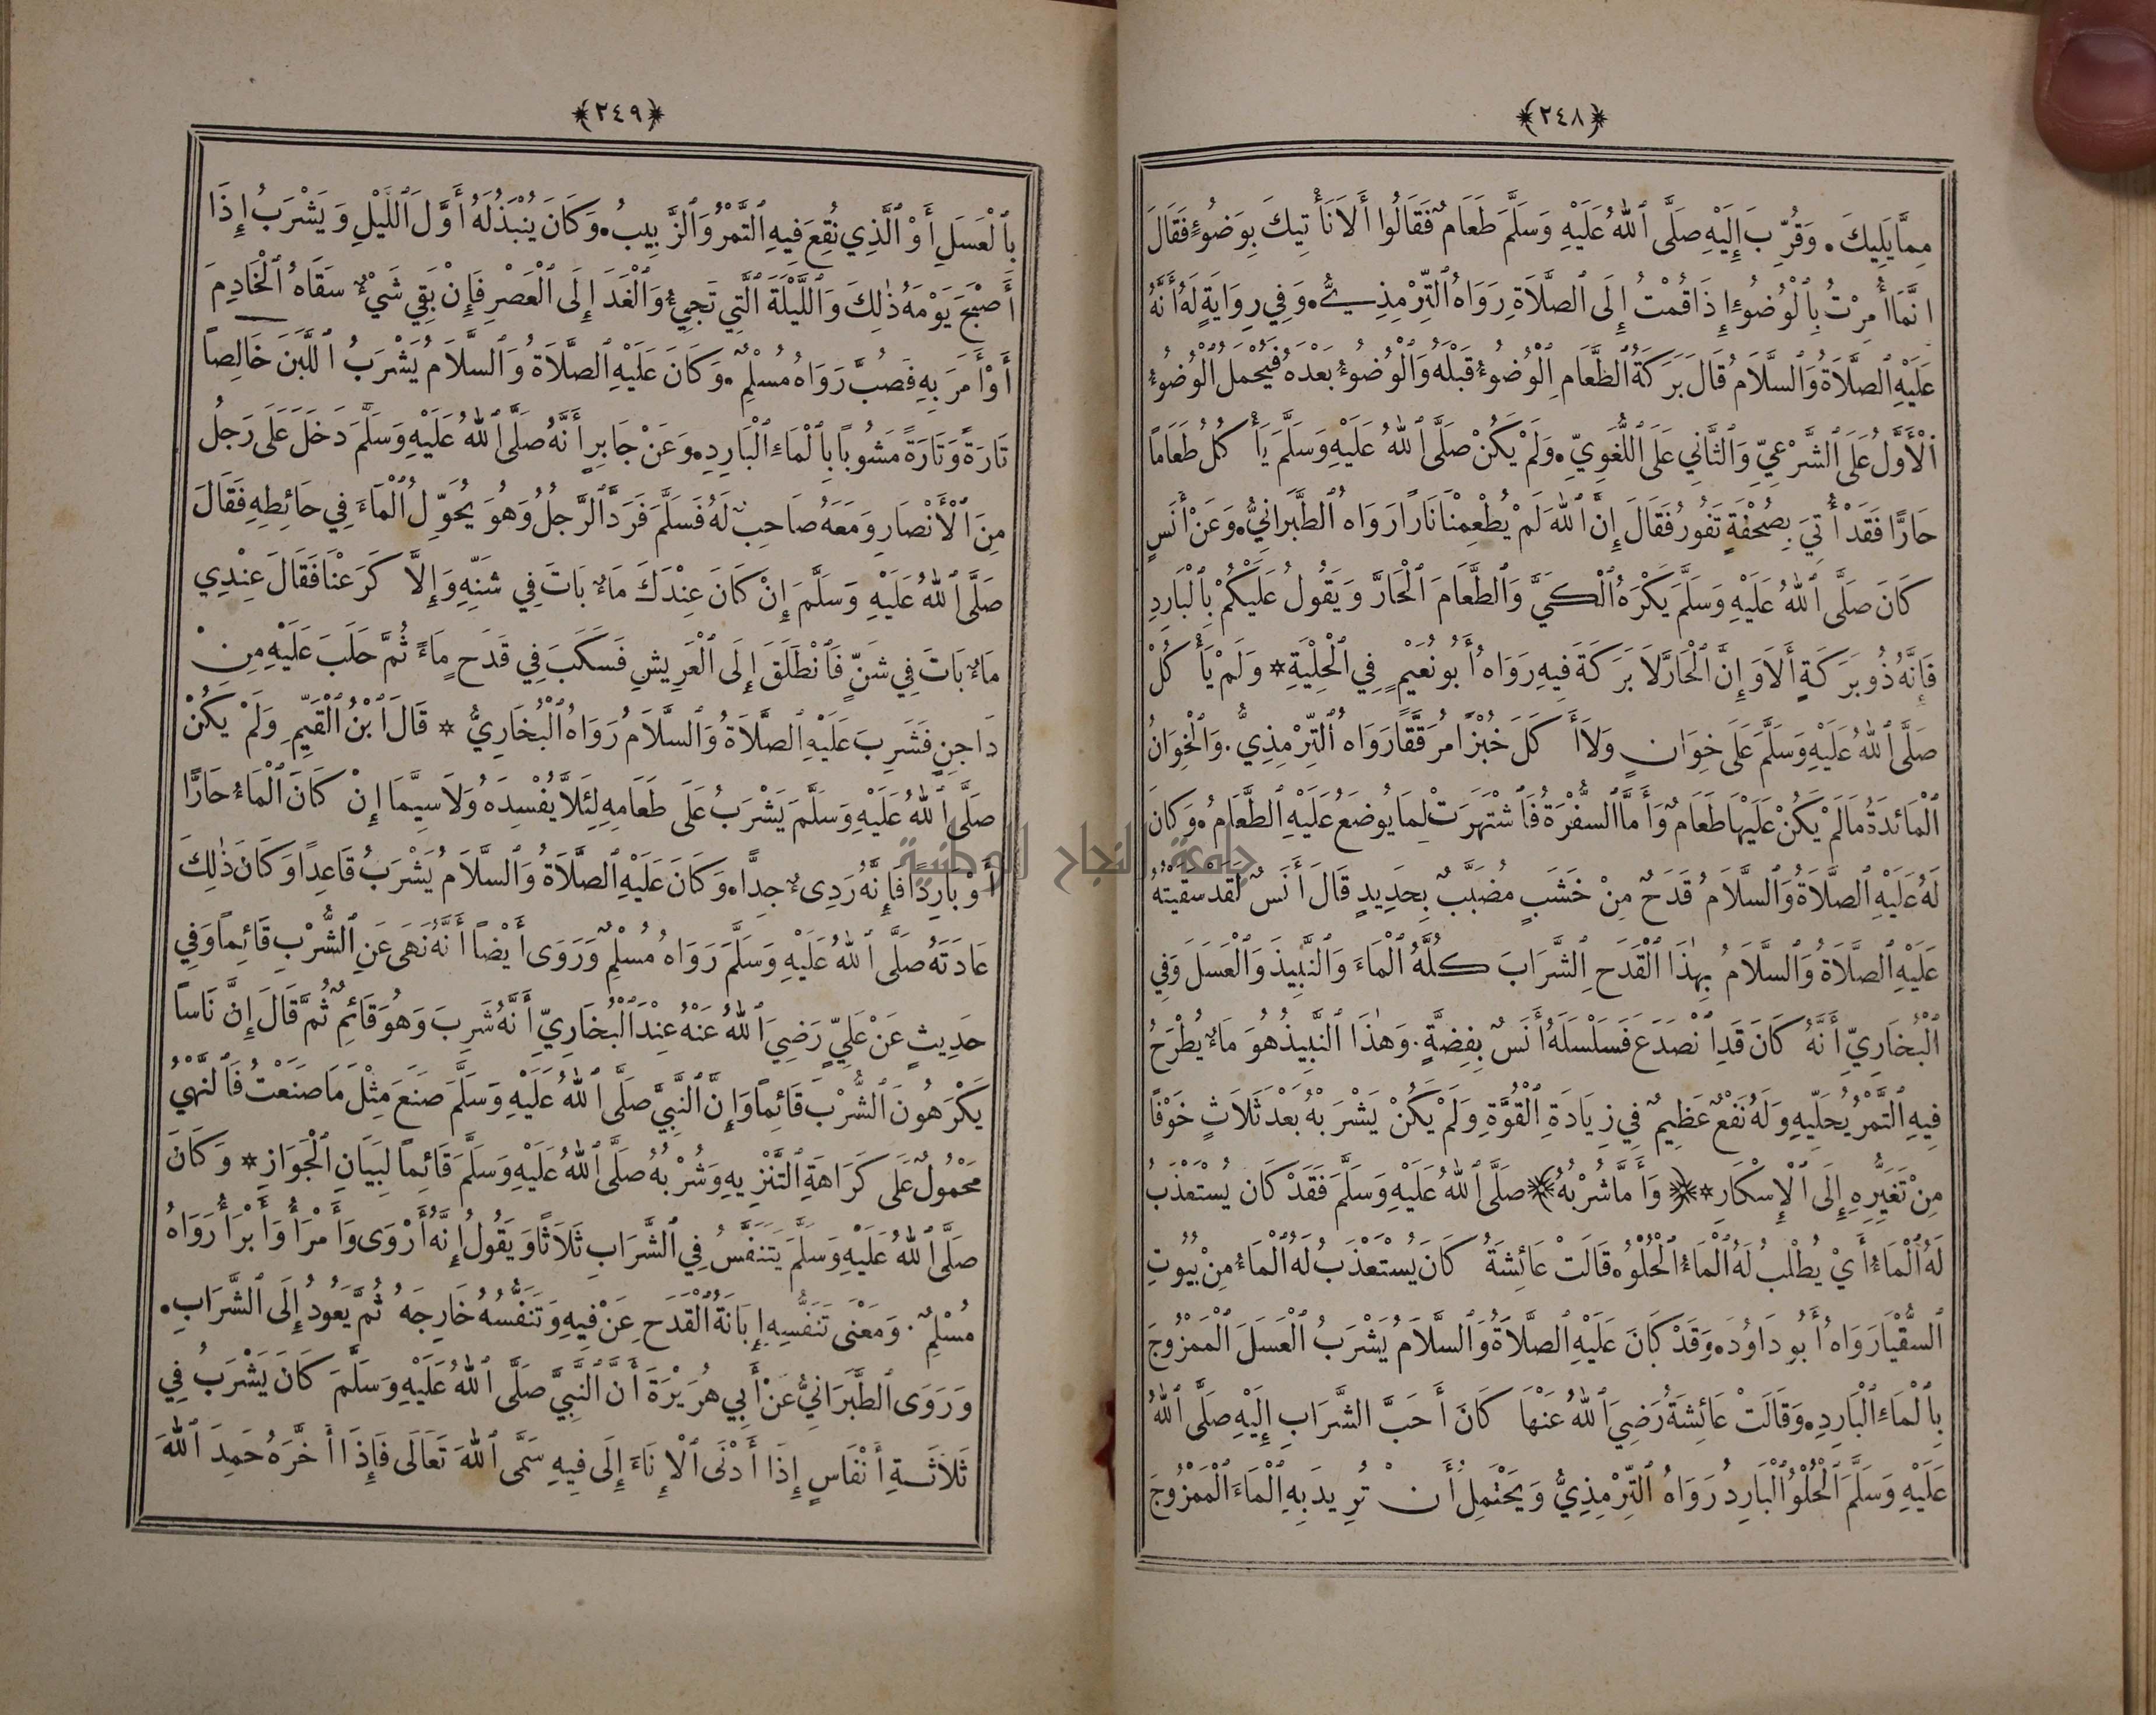 ﴿٢٤٨﴾
مِمَّا يَلِيكَ. وَقُرِّبَ إِلَيْهِ صَلَّى ٱللهُ عَلَيْهِ وَسَلَّمَ طَعَامٌ فَقَالُوا أَلَا نَأْتِيكَ بِوَضُوءٍ فَقَالَ
انَّمَا أُمِرْتُ بِٱلْوُضُوءِ إِذَا قُمْتُ إِلَى ٱلصَّلَاةِ رَوَاهُ ٱلتِّرْمِذِيُّ. وَفِي رِوَايَةٍ لَهُ أَنَّهُ
عَلَيْهِ ٱلصَّلَاةُ وَٱلسَّلَامُ قَالَ بَرَكَةُ ٱلطَّعَامِ ٱلْوُضُوءُ قَبْلَهُ وَٱلْوُضُوءُ بَعْدَهُ فَيُحْمَلُ ٱلْوُضُوءُ
ٱلْأَوَّلُ عَلَى ٱلشَّرْعِيِّ وَٱلثَّانِي عَلَى ٱللُّغَوِيِّ. وَلَمْ يَكُنْ صَلَّى ٱللهُ عَلَيْهِ وَسَلَّمَ يَأْكُلُ طَعَامًا
حَارًّا فَقَدْ أُتِيَ بِصُحْفَةٍ تَفُورُ فَقَالَ إِنَّ ٱللهَ لَمْ يُطْعِمْنَا نَارًا رَوَاهُ ٱلطَّبَرَانِيُّ. وَعَنْ أَنَسٍ
كَانَ صَلَّى ٱللهُ عَلَيْهِ وَسَلَّمَ يَكْرَهُ ٱلْكَيَّ وَٱلطَّعَامَ ٱلْحَارَّ وَيَقُولُ عَلَيْكُمْ بِٱلْبَارِدِ
فَإِنَّهُ ذُو بَرَكَةٍ أَلَا وَإِنَّ ٱلْحَارَّ لَا بَرَكَةَ فِيهِ رَوَاهُ أَبُو نُعَيْمٍ فِي ٱلْحِلْيَةِ * وَلَمْ يَأْكُلْ
صَلَّى ٱللهُ عَلَيْهِ وَسَلَّمَ عَلَى خِوَانٍ وَلَا أَكَلَ خُبْزًا مُرَقَّقًا رَوَاهُ ٱلتِّرْمِذِيُّ. وَٱلْخِوَانُ
ٱلْمَائِدَةُ مَا لَمْ يَكُنْ عَلَيْهَا طَعَامٌ وَأَمَّا ٱلسُّفْرَةُ فَٱشْتَهَرَتْ لِمَا يُوضَعُ عَلَيْهِ ٱلطَّعَامُ. وَكَانَ
لَهُ عَلَيْهِ ٱلصَّلَاةُ وَٱلسَّلَامُ قَدَحٌ مِنْ خَشَبٍ مُضَبَّبٌ بِحَدِيدٍ قَالَ أَنَسٌ لَقَدْ سَقَيْتُهُ
عَلَيْهِ ٱلصَّلَاةُ وَٱلسَّلَامُ بِهٰذَا ٱلْقَدَحِ ٱلشَّرَابَ كُلَّهُ ٱلْمَاءَ وَٱلنَّبِيذَ وَٱلْعَسَلَ وَفِي
ٱلْبُخَارِيِّ أَنَّهُ كَانَ قَدِ ٱنْصَدَعَ فَسَلْسَلَهُ أَنَسٌ بِفِضَّةٍ. وَهٰذَا ٱلنَّبِيذُ هُوَ مَاءٌ يُطْرَحُ
فِيهِ ٱلتَّمْرُ يُحَلِّيهِ وَلَهُ نَفْعٌ عَظِيمٌ فِي زِيَادَةِ ٱلْقُوَّةِ وَلَمْ يَكُنْ يَشْرَبُهُ بَعْدَ ثَلَاثٍ خَوْفًا
مِنْ تَغَيُّرِهِ إِلَى ٱلْإِسْكَارِ * ﴿وَأَمَّا شُرْبُهُ﴾ صَلَّى ٱللهُ عَلَيْهِ وَسَلَّمَ فَقَدْ كَانَ يُسْتَعْذَبُ
لَهُ ٱلْمَاءُ أَيْ يُطْلَبُ لَهُ ٱلْمَاءُ ٱلْحُلْوُ. قَالَتْ عَائِشَةُ كَانَ يُسْتَعْذَبُ لَهُ ٱلْمَاءُ مِنْ بُيُوتِ
ٱلسُّقْيَا رَوَاهُ أَبُو دَاوُدَ. وَقَدْ كَانَ عَلَيْهِ ٱلصَّلَاةُ وَٱلسَّلَامُ يَشْرَبُ ٱلْعَسَلَ ٱلْمَمْزُوجَ
بِٱلْمَاءِ ٱلْبَارِدِ. وَقَالَتْ عَائِشَةُ رَضِيَ ٱللهُ عَنْهَا كَانَ أَحَبَّ ٱلشَّرَابِ إِلَيْهِ صَلَّى ٱللهُ
عَلَيْهِ وَسَلَّمَ ٱلْحُلْوُ ٱلْبَارِدُ رَوَاهُ ٱلتِّرْمِذِيُّ وَيَحْتَمِلُ أَنْ تُرِيدَ بِهِ ٱلْمَاءَ ٱلْمَمْزُوجَ
﴿٢٤٩﴾
بِٱلْعَسَلِ أَوْ ٱلَّذِي نُقِعَ فِيهِ ٱلتَّمْرُ وَٱلزَّبِيبُ. وَكَانَ يُنْبَذُ لَهُ أَوَّلَ ٱللَّيْلِ وَيَشْرَبُ إِذَا
أَصْبَحَ يَوْمَهُ ذٰلِكَ وَٱللَّيْلَةَ ٱلَّتِي تَجِيءُ وَٱلْغَدَ إِلَى ٱلْعَصْرِ فَإِنْ بَقِيَ شَيْءٌ سَقَاهُ ٱلْخَادِمَ
أَوْ أَمَرَ بِهِ فَصُبَّ رَوَاهُ مُسْلِمٌ. وَكَانَ عَلَيْهِ ٱلصَّلَاةُ وَٱلسَّلَامُ يَشْرَبُ ٱللَّبَنَ خَالِصًا
تَارَةً وَتَارَةً مَشُوبًا بِٱلْمَاءِ ٱلْبَارِدِ. وَعَنْ جَابِرٍ أَنَّهُ صَلَّى ٱللهُ عَلَيْهِ وَسَلَّمَ دَخَلَ عَلَى رَجُلٍ
مِنَ ٱلْأَنْصَارِ وَمَعَهُ صَاحِبٌ لَهُ فَسَلَّمَ فَرَدَّ ٱلرَّجُلُ وَهُوَ يُحَوِّلُ ٱلْمَاءَ فِي حَائِطِهِ فَقَالَ
صَلَّى ٱللهُ عَلَيْهِ وَسَلَّمَ إِنْ كَانَ عِنْدَكَ مَاءٌ بَاتَ فِي شَنِّهِ وَإِلَّا كَرَعْنَا فَقَالَ عِنْدِي
مَاءٌ بَاتَ فِي شَنٍّ فَٱنْطَلَقَ إِلَى ٱلْعَرِيشِ فَسَكَبَ فِي قَدَحٍ مَاءً ثُمَّ حَلَبَ عَلَيْهِ مِنْ
دَاجِنٍ فَشَرِبَ عَلَيْهِ ٱلصَّلَاةُ وَٱلسَّلَامُ رَوَاهُ ٱلْبُخَارِيُّ * قَالَ ٱبْنُ ٱلْقَيِّمِ وَلَمْ يَكُنْ
صَلَّى ٱللهُ عَلَيْهِ وَسَلَّمَ يَشْرَبُ عَلَى طَعَامِهِ لِئَلَّا يُفْسِدَهُ وَلَا سِيَّمَا إِنْ كَانَ ٱلْمَاءُ حَارًّا
أَوْ بَارِدًا فَإِنَّهُ رَدِيءٌ جِدًّا. وَكَانَ عَلَيْهِ ٱلصَّلَاةُ وَٱلسَّلَامُ يَشْرَبُ قَاعِدًا وَكَانَ ذٰلِكَ
عَادَتَهُ صَلَّى ٱللهُ عَلَيْهِ وَسَلَّمَ رَوَاهُ مُسْلِمٌ وَرَوَى أَيْضًا أَنَّهُ نَهَى عَنِ ٱلشُّرْبِ قَائِمًا وَفِي
حَدِيثٍ عَنْ عَلِيٍّ رَضِيَ ٱللهُ عَنْهُ عِنْدَ ٱلْبُخَارِيِّ أَنَّهُ شَرِبَ وَهُوَ قَائِمٌ ثُمَّ قَالَ إِنَّ نَاسًا
يَكْرَهُونَ ٱلشُّرْبَ قَائِمًا وَإِنَّ ٱلنَّبِيَّ صَلَّى ٱللهُ عَلَيْهِ وَسَلَّمَ صَنَعَ مِثْلَ مَا صَنَعْتُ فَٱلنَّهْيُ
مَحْمُولٌ عَلَى كَرَاهَةِ ٱلتَّنْزِيهِ وَشُرْبُهُ صَلَّى ٱللهُ عَلَيْهِ وَسَلَّمَ قَائِمًا لِبَيَانِ ٱلْجَوَازِ * وَكَانَ
صَلَّى ٱللهُ عَلَيْهِ وَسَلَّمَ يَتَنَفَّسُ فِي ٱلشَّرَابِ ثَلَاثًا وَيَقُولُ إِنَّهُ أَرْوَى وَأَمْرَأُ وَأَبْرَأُ رَوَاهُ
مُسْلِمٌ. وَمَعْنَى تَنَفُّسِهِ إِبَانَةُ ٱلْقَدَحِ عَنْ فِيهِ وَتَنَفُّسُهُ خَارِجَهُ ثُمَّ يَعُودُ إِلَى ٱلشَّرَابِ.
وَرَوَى ٱلطَّبَرَانِيُّ عَنْ أَبِي هُرَيْرَةَ أَنَّ ٱلنَّبِيَّ صَلَّى ٱللهُ عَلَيْهِ وَسَلَّمَ كَانَ يَشْرَبُ فِي
ثَلَاثَةِ أَنْفَاسٍ إِذَا أَدْنَى ٱلْإِنَاءَ إِلَى فِيهِ سَمَّى ٱللهَ تَعَالَى فَإِذَا أَخَّرَهُ حَمِدَ ٱللهَ
جامعة النجاح الوطنية